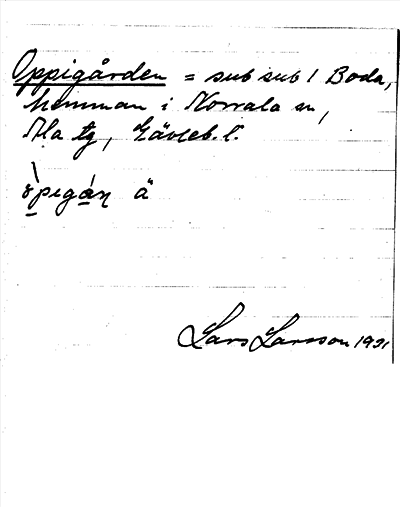 Oppigården = sub sub 1 Boda,
hemman i Norrala sn,
Ala tg, Gävleb. l.
ä
Lars Larsson 1991